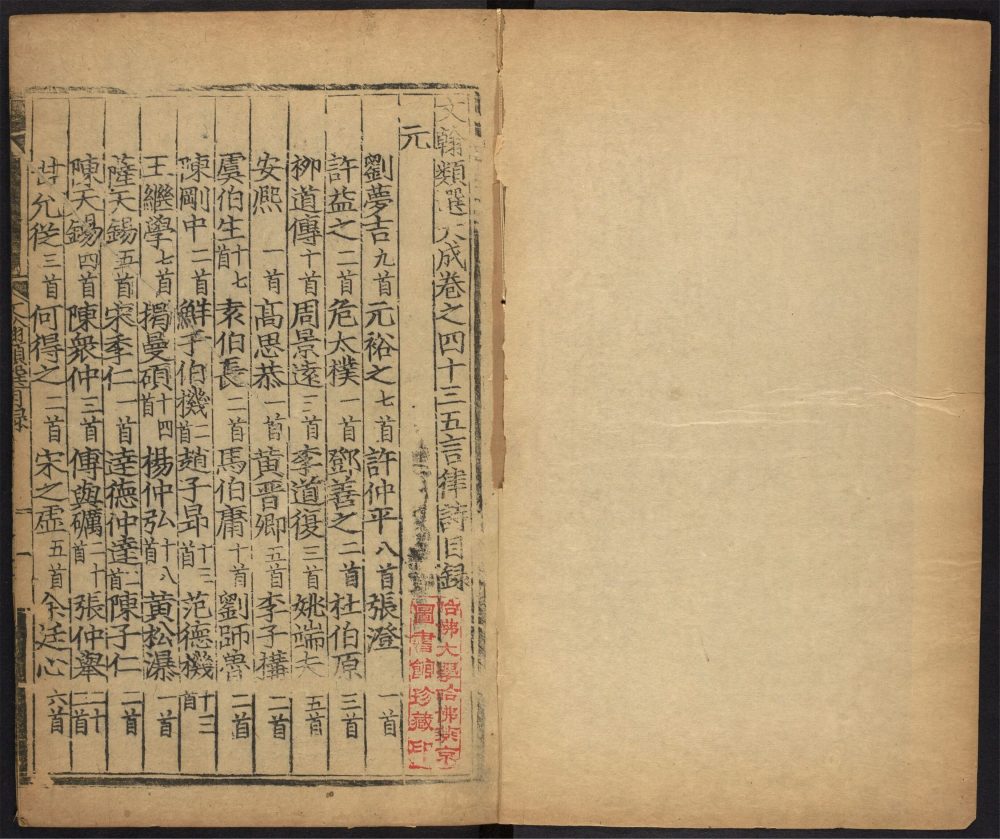 文翰類選大成卷之四十三五言律詩目錄
元
劉夢吉九首元裕之七首許仲平八首張澄一首
許益之二首危太樸一首鄧善之二首杜伯原三首
柳道傳十首周景遠二首李道復三首姚端夫五首
安熈一首高思恭一首黃晉卿五首李子構二首
虞伯生十七首袁伯長二首馬伯庸十首劉師魯二首
陳剛中二首鮮于伯機二首趙子昻十二首范德機十三首
王繼學七首揭曼碩十四首楊仲弘十八首黃松瀑一首
薩天錫五首宋季仁一首逹德仲逹二首陳子仁二首
陳天錫四首陳衆仲三首傅與礪二十首張仲舉二十二首
甘允從三首何得之二首宋之虛五首余廷心六首
類選目錄
一
哈佛大學哈佛燕京
圖書館珍藏印